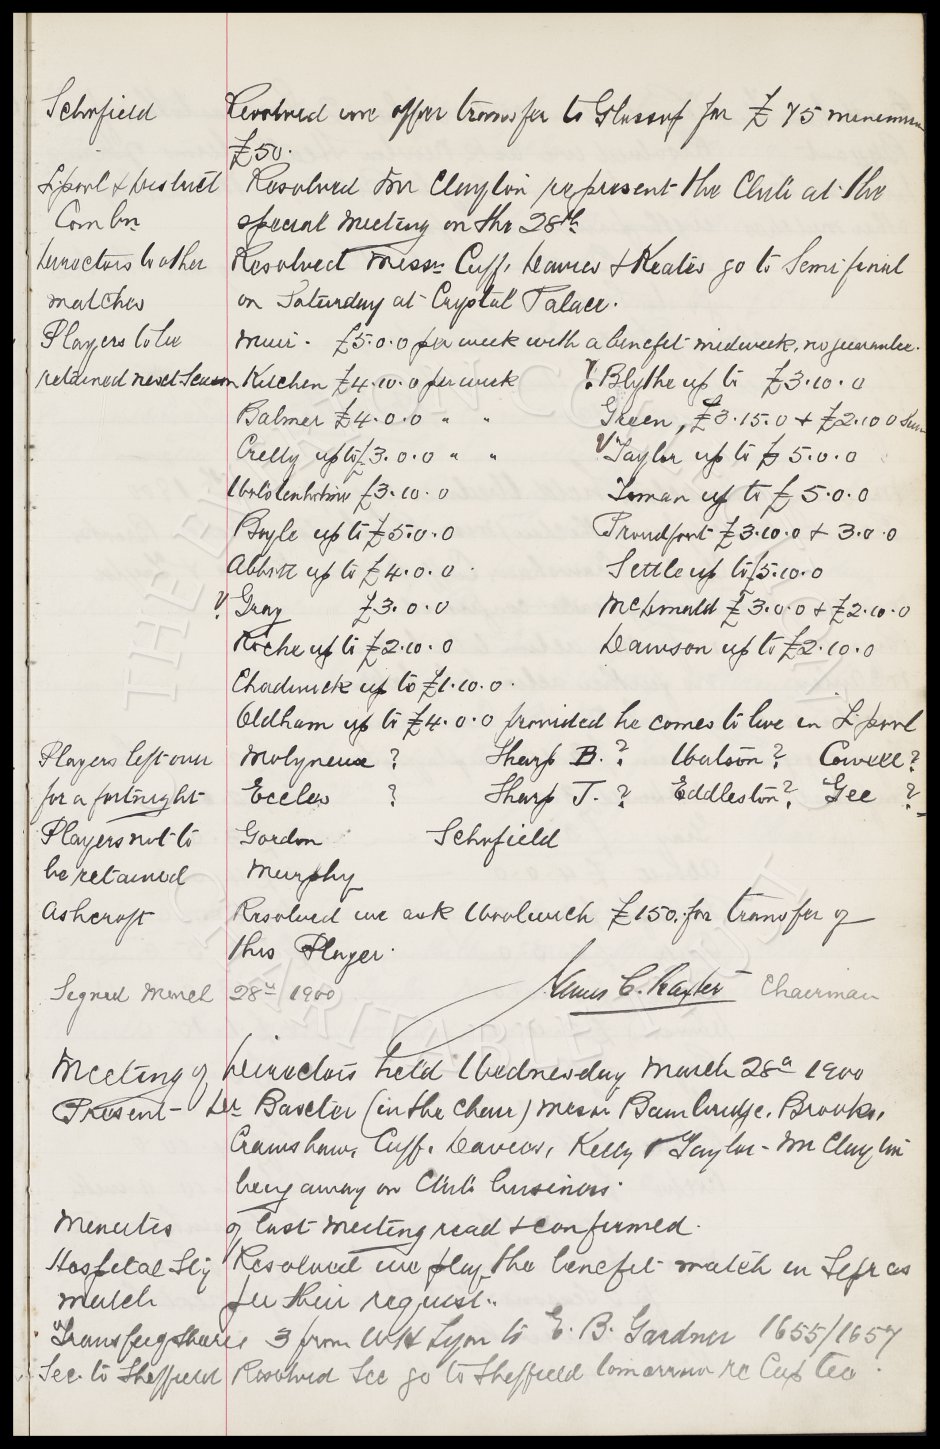 Schofield Resolved we offer transfer to Glossop for £75 minimum
£50.
L'pool & District Resolved Mr Clayton represent the Club at the
Combn special meeting on the 28th
Directors to other Resolved Messrs Cuff, Davies & Keates go to Semi final
matches on Saturday at Crystal Palace.
Players to be Muir - £5.0.0 per week with a benefit midweek, no guarantee.
retained next Season Kitchen £4.10.0 per week ? Blythe up to £3.10.0
Balmer £4.0.0 " " Green, £3.15.0 + £2.10.0 Sum
Crelly up to £3.0.0 " " ? Taylor up to £5.0.0
Wolstenholme £3.10.0 Toman up to £5.0.0
Boyle up to £5.0.0 Proudfoot £3.10.0 + 3.0.0
Abbott up to £4.0.0. Settle up to £5.10.0
? Gray £3.0.0 McDonald £3.0.0 & £2.10.0
Roche up to £2.10.0 Dawson up to £2.10.0
Chadwick up to £1.10.0.
Oldham up to £4.0.0 provided he comes to live in L'pool
Players left over Molyneux ? Sharp B. ? Watson ? Cowell ?
for a fortnight Eccles ? Sharp J. ? Eddleston ? Gee ?
Players not to Gordon Schofield
be retained Murphy
Ashcroft Resolved we ask Woolwich £150. for transfer of
this Player.
Signed March 28th 1900 James C. Baxter Chairman
Meeting of Directors held Wednesday March 28th 1900
Present - Dr Baxter (in the Chair) Messrs Bainbridge, Brooks,
Crawshaw, Cuff, Davies, Kelly & Taylor - Mr Clayton
being away on Club business.
Minutes of last meeting read & confirmed.
Hospital Sty Resolved we play the benefit match in Sepr as
match per their request.
Transfer of Shares 3 from W H Lyon to E. B. Gardner 1655/1657
Sec. to Sheffield Resolved Sec go to Sheffield tomorrow re Cup tie.